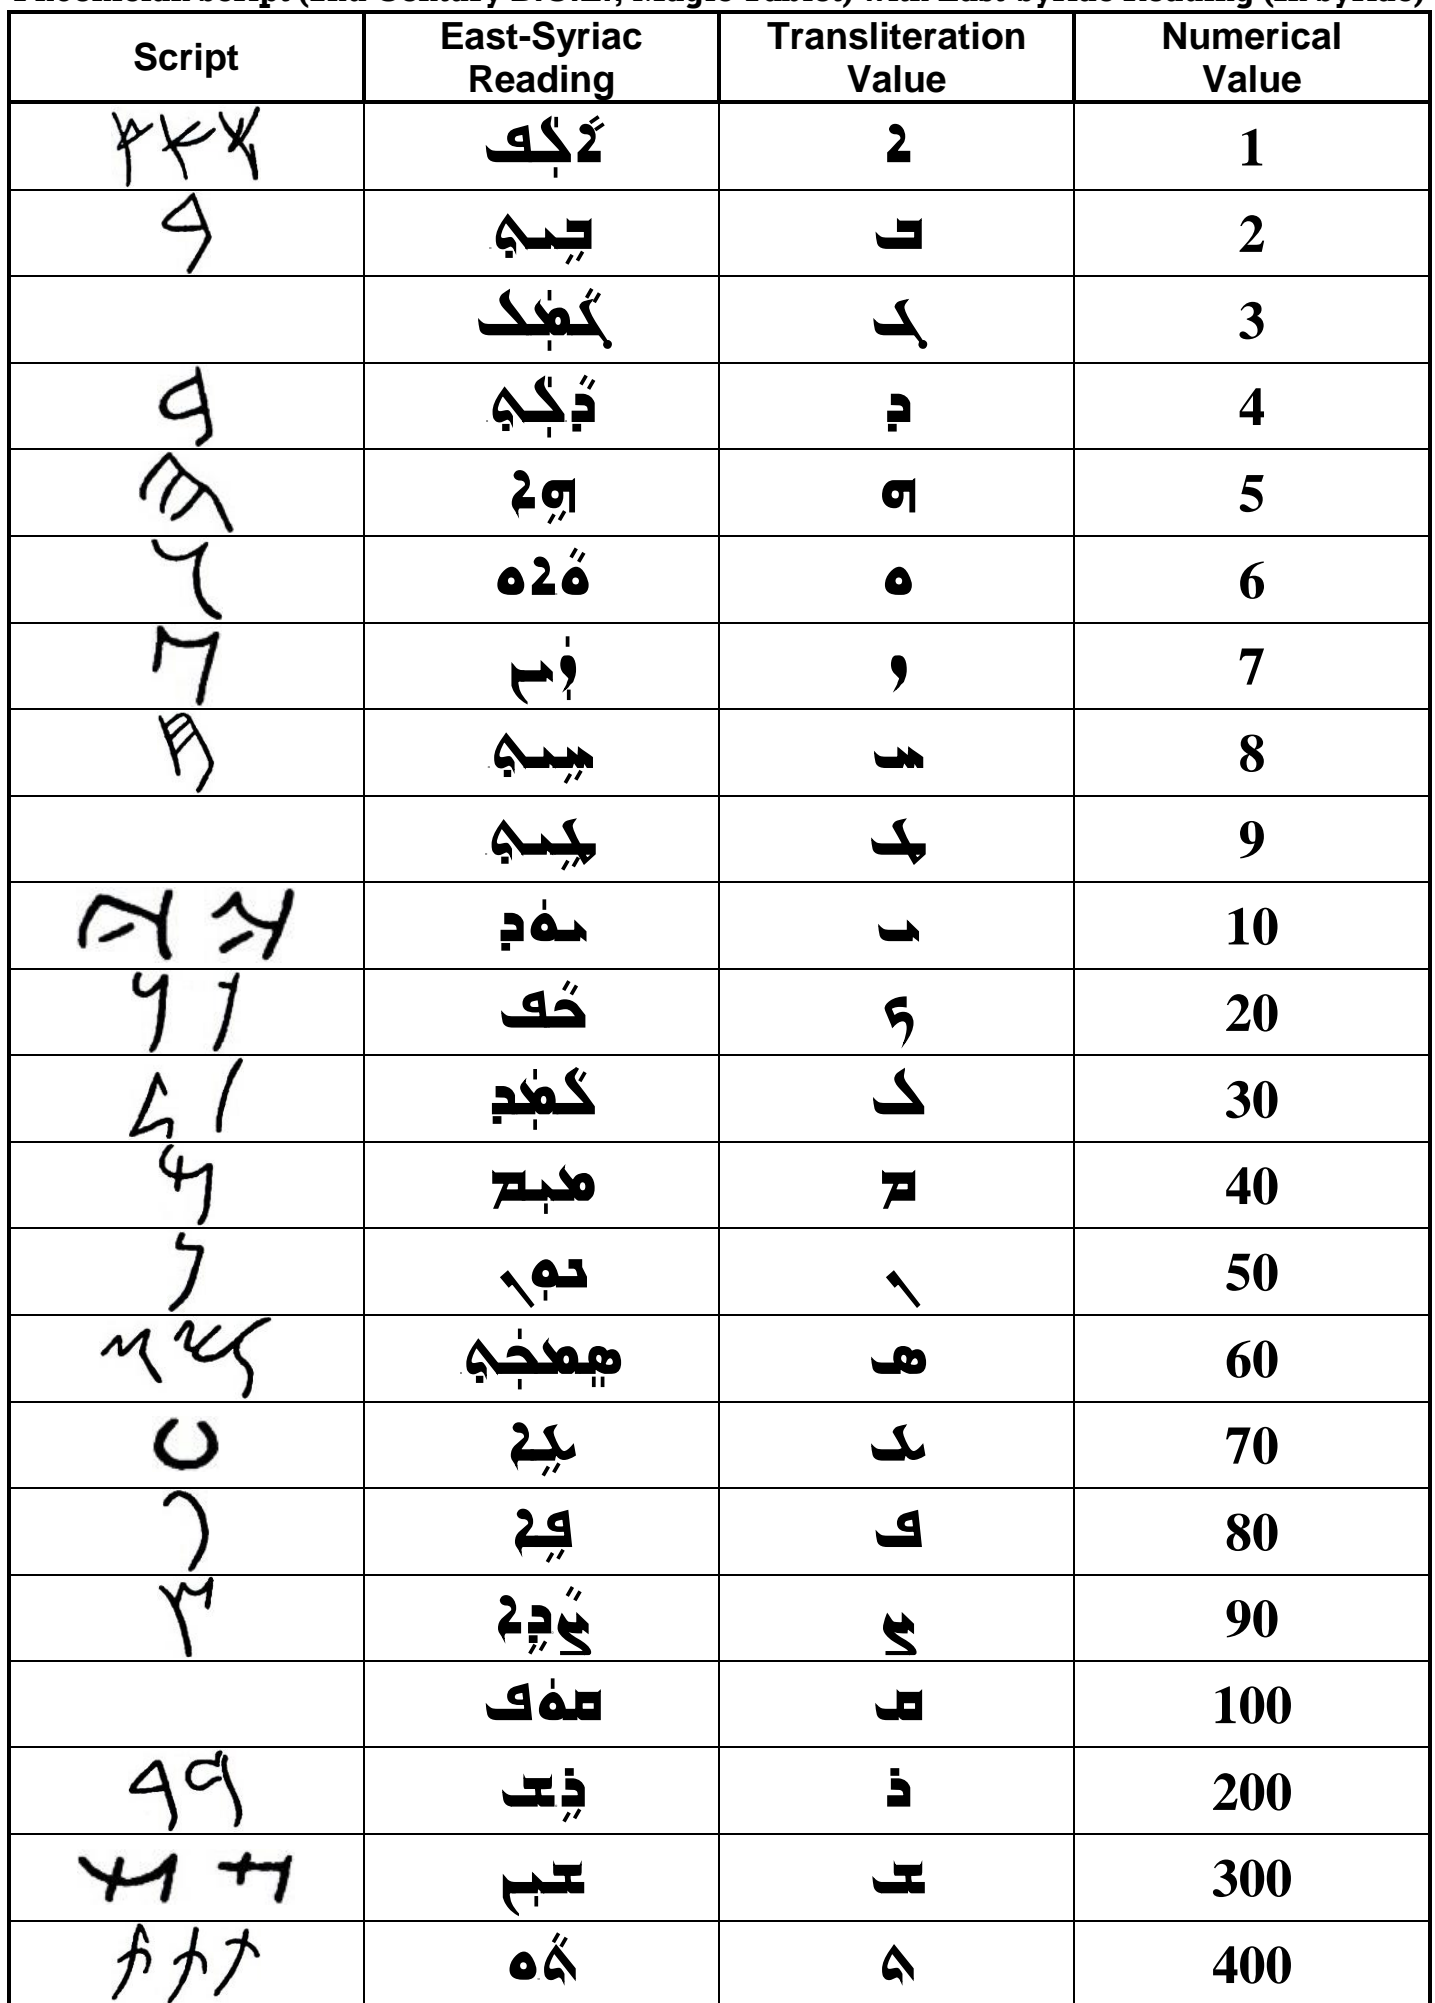 Phoenician Script (2nd Century B.C.E., Magic Tablet) with East-Syriac Reading (in Syriac)
Script East-Syriac Reading Transliteration Value Numerical Value
ܐܵܠܲܦ ܐ 1
ܒܹܝܬ݂ ܒ 2
ܓܵܡܲܠ ܓ 3
ܕܵܠܲܬ݂ ܕ 4
ܗܹܐ ܗ 5
ܘܵܐܘ ܘ 6
ܙܲܝܢ ܙ 7
ܚܹܝܬ݂ ܚ 8
ܛܹܝܬ݂ ܛ 9
ܝܘܿܕ ܝ 10
ܟܵܦ ܟ 20
ܠܵܡܲܕ ܠ 30
ܡܝܼܡ ܡ 40
ܢܘܼܢ ܢ 50
ܣܸܡܟܲܬ݂ ܣ 60
ܥܹܐ ܥ 70
ܦܹܐ ܦ 80
ܨܵܕܹܐ ܨ 90
ܩܘܿܦ ܩ 100
ܪܹܫ ܪ 200
ܫܝܼܢ ܫ 300
ܬܵܘ ܬ 400